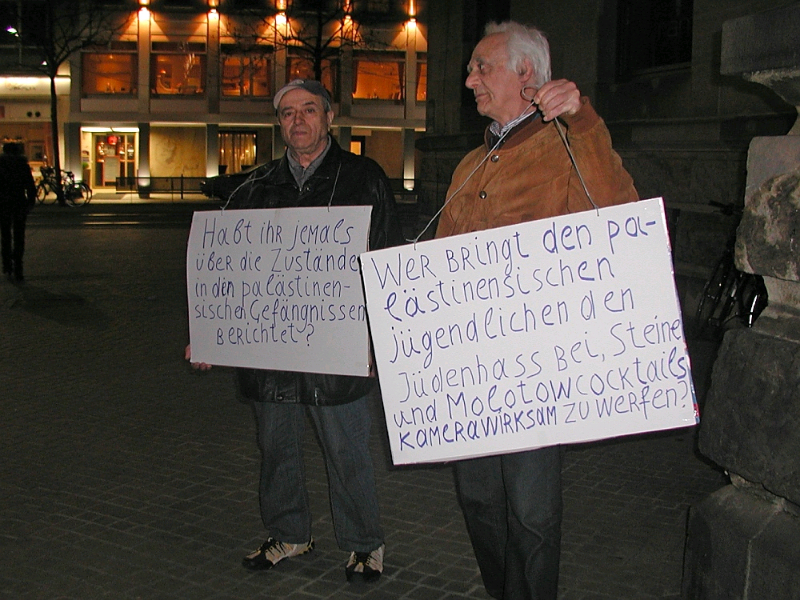 Habt ihr jemals
über die Zustände
in den palästinen-
sischen Gefängnissen
berichtet?
Wer bringt den pa-
lästinensischen
jügendlichen den
Jüdenhass bei, Steine
und Molotowcocktails
kamerawirksam zu werfen?